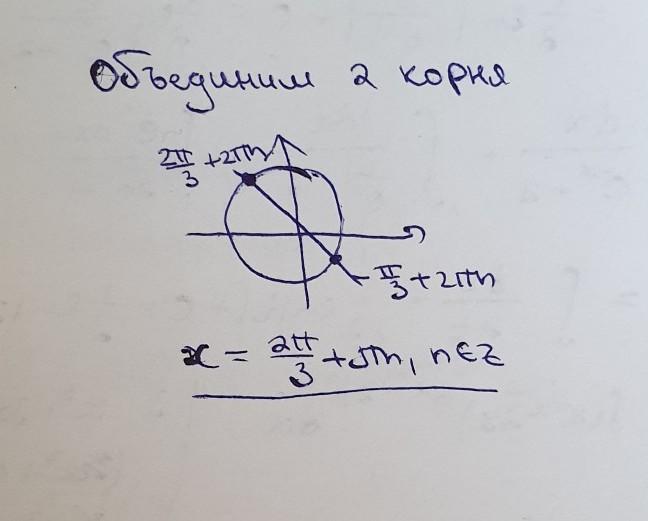 Объединим 2 корня
2π/3 + 2πn
-π/3 + 2πn
x = 2π/3 + πn, n∈Z